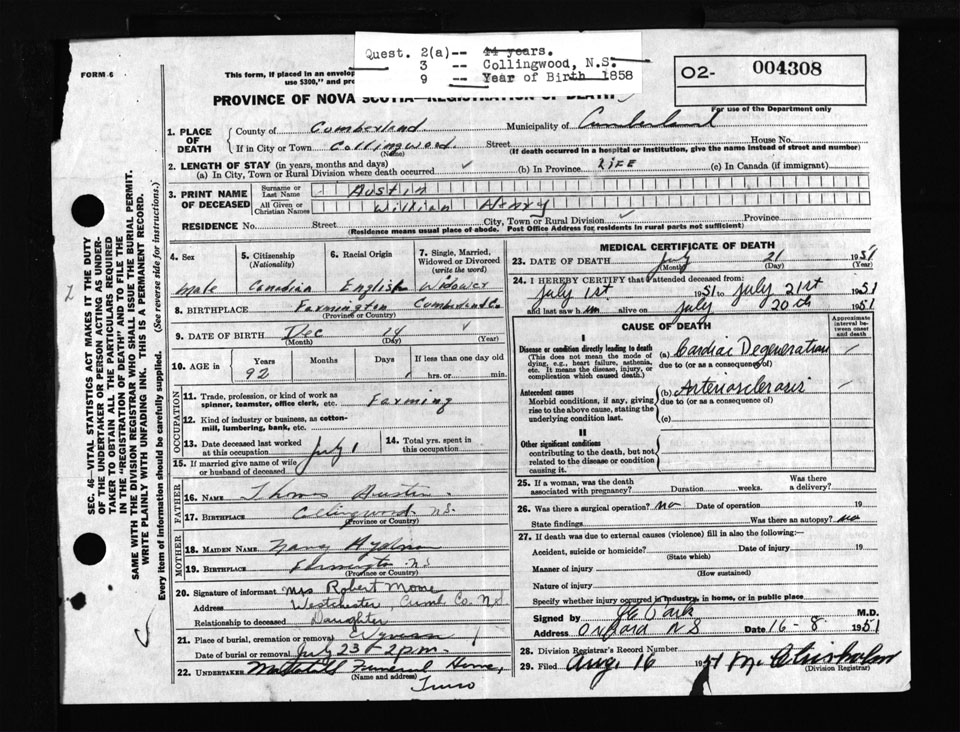 Quest. 2(a)-- 44 years.
3 -- Collingwood, N.S.
9 -- Year of Birth 1858
FORM 6
O2- 004308
For use of the Department only
This form, if placed in an envelop
use $300," and pr
PROVINCE OF NOVA SCOTIA—REGISTRATION OF DEATH
1. PLACE OF DEATH
County of Cumberland Municipality of Cumberland
If in City or Town Collingwood. Street House No.
(Name) (If death occurred in a hospital or institution, give the name instead of street and number)
2. LENGTH OF STAY (in years, months and days)
(a) In City, Town or Rural Division where death occurred (b) In Province Life (c) In Canada (if immigrant)
3. PRINT NAME OF DECEASED
Surname or Last Name Austin
All Given or Christian Names William Henry
RESIDENCE No. Street City, Town or Rural Division Province
(Residence means usual place of abode. Post Office Address for residents in rural parts not sufficient)
4. Sex
Male
5. Citizenship (Nationality)
Canadian
6. Racial Origin
English
7. Single, Married, Widowed or Divorced (write the word)
Widower
8. BIRTHPLACE Farmington Cumberland Co
(Province or Country)
9. DATE OF BIRTH Dec 14
(Month) (Day) (Year)
10. AGE in Years Months Days If less than one day old
92 hrs. or min.
OCCUPATION
11. Trade, profession, or kind of work as spinner, teamster, office clerk, etc. Farming
12. Kind of industry or business, as cotton-mill, lumbering, bank, etc.
13. Date deceased last worked at this occupation July 1
14. Total yrs. spent in this occupation
15. If married give name of wife or husband of deceased
FATHER
16. NAME Thomas Austin
17. BIRTHPLACE Collingwood N.S.
(Province or Country)
MOTHER
18. MAIDEN NAME
19. BIRTHPLACE N.S.
(Province or Country)
20. Signature of informant Mrs Robert
Address Westchester, Cumb. Co. N.S.
Relationship to deceased Daughter
21. Place of burial, cremation or removal
Date of burial or removal July 23 - 2 p.m.
22. UNDERTAKER Funeral Home,
(Name and address) Truro
MEDICAL CERTIFICATE OF DEATH
23. DATE OF DEATH July 21 1951
(Month) (Day) (Year)
24. I HEREBY CERTIFY that I attended deceased from:
July 1st 1951 to July 21st 1951
and last saw him alive on July 20th 1951
CAUSE OF DEATH
Approximate interval between onset and death
I
Disease or condition directly leading to death
(This does not mean the mode of dying, e.g., heart failure, asthenia, etc. It means the disease, injury, or complication which caused death.)
(a) Cardiac Degeneration
due to (or as a consequence of)
Antecedent causes
Morbid conditions, if any, giving rise to the above cause, stating the underlying condition last.
(b) Arteriosclerosis
due to (or as a consequence of)
(c)
II
Other significant conditions
contributing to the death, but not related to the disease or condition causing it.
25. If a woman, was the death associated with pregnancy? Duration weeks. Was there a delivery?
26. Was there a surgical operation? no Date of operation 19
State findings Was there an autopsy? no
27. If death was due to external causes (violence) fill in also the following:—
Accident, suicide or homicide? Date of injury 19
(State which)
Manner of injury
(How sustained)
Nature of injury
Specify whether injury occurred in industry, in home, or in public place
Signed by Park M.D.
Address Oxford N S Date 16-8- 1951
28. Division Registrar's Record Number
29. Filed Aug. 16 1951 M. Chisholm
(Division Registrar)
SEC. 46—VITAL STATISTICS ACT MAKES IT THE DUTY
OF THE UNDERTAKER OR PERSON ACTING AS UNDER-
TAKER TO OBTAIN ALL THE PARTICULARS REQUIRED
IN THE "REGISTRATION OF DEATH" AND TO FILE THE
SAME WITH THE DIVISION REGISTRAR WHO SHALL ISSUE THE BURIAL PERMIT.
WRITE PLAINLY WITH UNFADING INK. THIS IS A PERMANENT RECORD.
Every item of information should be carefully supplied. (See reverse side for instructions.)